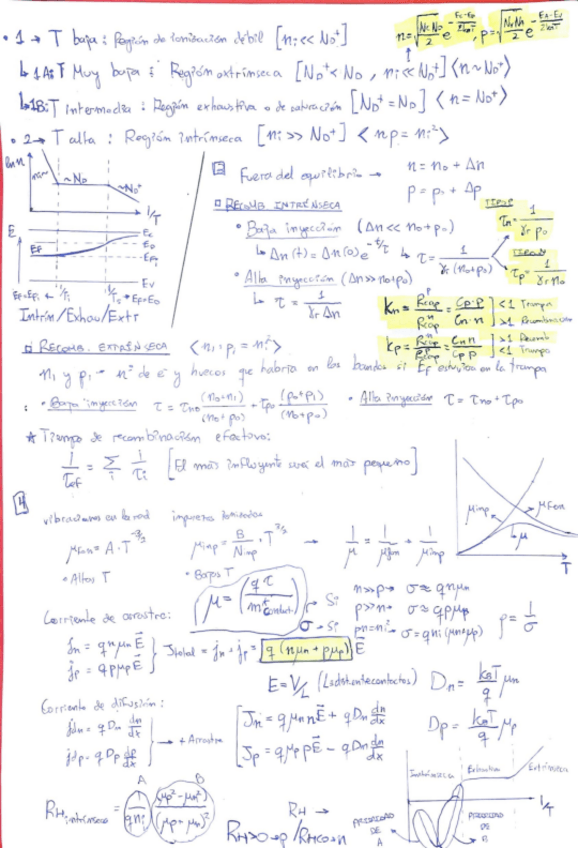 • 1 → T baja : Región de ionización débil [ni << ND⁺]
n = √(Nc ND / 2) e^(-(Ec-ED)/2kBT) , p = √(Nv NA / 2) e^(-(EA-Ev)/2kBT)
↳ 1A: T Muy baja : Región extrínseca [ND⁺ < ND , ni << ND⁺] < n ~ ND⁺ >
↳ 1B: T intermedia : Región exhaustiva o de saturación [ND⁺ = ND] < n = ND⁺ >
• 2 → T alta : Región intrínseca [ni >> ND⁺] < np = ni² >
ln n
~ND
~ND⁺
1/T
E
Ec
ED
EFi
Ev
EF
EF=EFi ← 1/Ti
1/Ts → EF=ED
Intrín/Exhau/Extr
3 Fuera del equilibrio →
n = n₀ + Δn
p = p₀ + Δp
□ RECOMB. INTRÍNSECA
• Baja inyección (Δn << n₀ + p₀)
↳ Δn(t) = Δn(0) e^(-t/τ) ↳ τ = 1 / γr (n₀+p₀)
TIPO P
τn = 1 / γr p₀
TIPO N
τp = 1 / γr n₀
• Alta inyección (Δn >> n₀+p₀)
↳ τ = 1 / γr Δn
Kn = Rcap^p / Rcap^n = Cp·p / Cn·n ] <1 Trampa
>1 Recombinación
Kp = Rcap^n / Rcap^p = Cn n / Cp p ] >1 Recomb
<1 Trampa
□ RECOMB. EXTRÍNSECA < n₁ · p₁ = ni² >
n₁ y p₁ → nº de e⁻ y huecos que habría en las bandas si EF estuviera en la trampa
: • Baja inyección τ = τn0 (n₀+n₁)/(n₀+p₀) + τp0 (p₀+p₁)/(n₀+p₀) • Alta inyección τ = τn0 + τp0
★ Tiempo de recombinación efectivo:
1/τef = Σi 1/τi [El más influyente será el más pequeño]
4
vibraciones en la red impurezas ionizadas
μfon = A · T^(-3/2) μimp = B/Nimp · T^(3/2) → 1/μ = 1/μfon + 1/μimp
• Altas T • Bajas T
μimp
μfon
μ
T
μ = (q τ / m*conduct.)
σ → Si n>>p → σ ≈ qnμn
Si p>>n → σ ≈ qpμp
Si pn=ni² → σ = qni(μn+μp)
ρ = 1/σ
Corriente de arrastre:
jn = qnμn E
jp = qpμp E
Jtotal = jn + jp = q (nμn + pμp) E
E = V/L (L≡dist. entre contactos)
Dn = kBT/q μn
Dp = kBT/q μp
Corriente de difusión:
jdn = q Dn dn/dx
jdp = q Dp dp/dx
→ + Arrastre
Jn = qμn n E + qDn dn/dx
Jp = qμp p E − qDn dn/dx
A B
RH intrínseco = (1/qni) (μp² − μn²)/(μp − μn)²
RH →
RH>0→p / RH<0→n
Intrínseca Exhaustiva Extrínseca
1/T
PRIORIDAD DE A
PRIORIDAD DE B